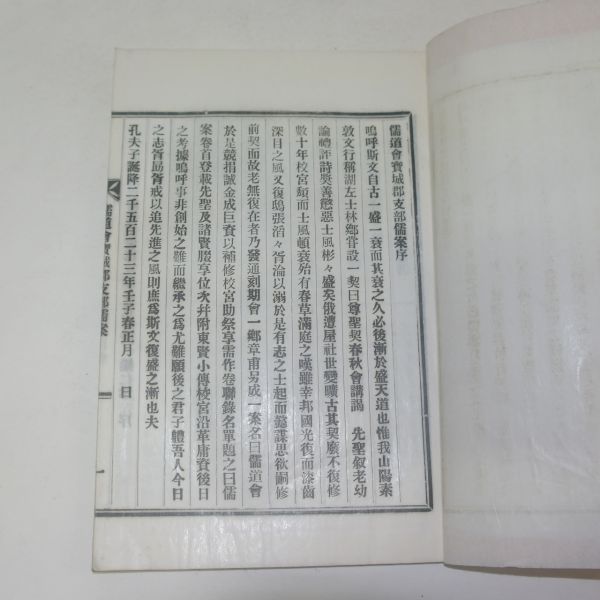 儒道會寶城郡支部儒案序
嗚呼斯文自古一盛一衰而其衰之久必後漸於盛天道也惟我山陽素
敦文行稱湖左士林鄉甞設一契曰尊聖契春秋會講謁 先聖叙老幼
論禮評詩奬善懲惡士風彬々盛矣俄遭屋社世變曠古其契廢不復修
數十年校宮頹而士風頓衰殆有春草滿庭之嘆雖幸邦國光復而漆齒
深目之風又復鴟張滔々胥淪以溺於是有志之士起而懿謀思欲嗣修
前契而故老無復在者乃發通刻期會一鄉章甫另成一案名曰儒道會
於是競捐誠金成巨資以補修校宮助祭享需作卷聯錄名單題之曰儒
案卷首登載先聖及諸賢腏享位次幷附東賢小傳校宮沿革庸資後日
之考據嗚呼事非創始之難而繼承之爲尤難願後之君子體吾人今日
之志胥勗胥戒以追先進之風則庶爲斯文復盛之漸也夫
孔夫子誕降二千五百二十三年壬子春正月 日 序
儒道會寶城郡支部儒案
一